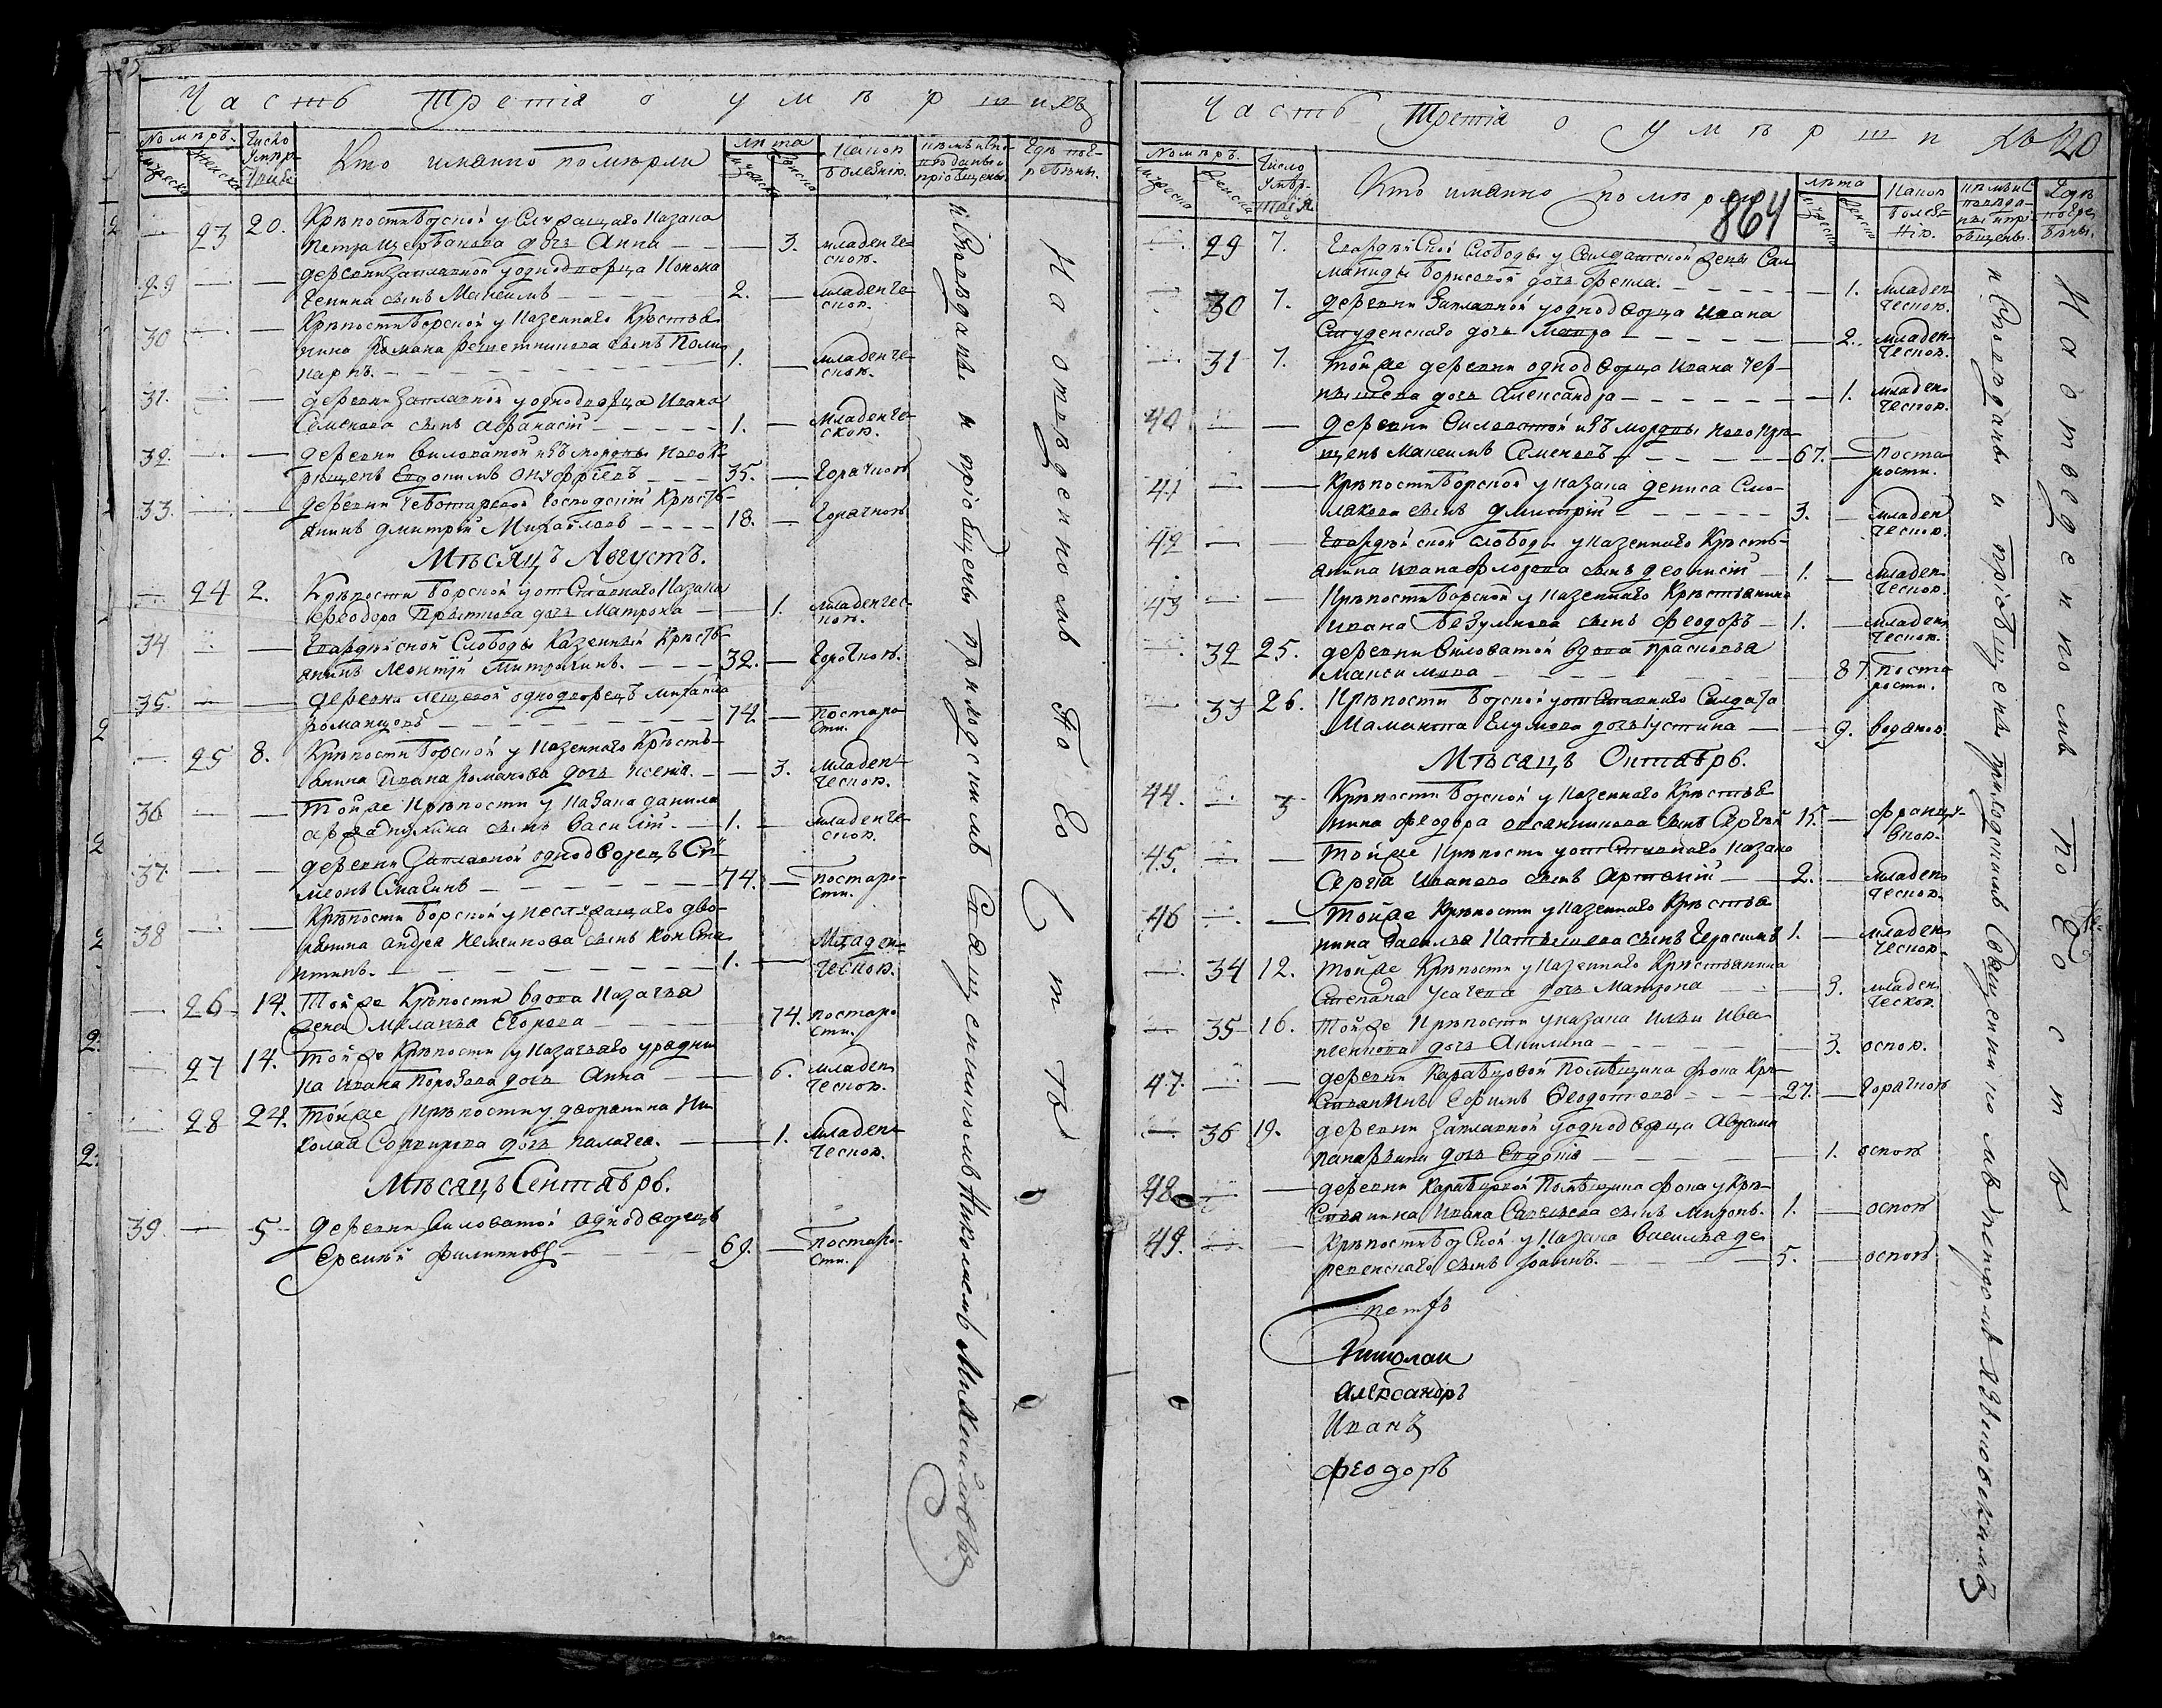 Часть Третiя о умѣршихъ
Номѣръ.
Число
Умѣр
Кто имянно помѣрли
лѣта
Какою
болѣзнiю.
Гдѣ погребѣны.
23 20. Крѣпости Борской у Служащаго казака
Петра Щербакова дочь Анна — 3. младенческою.
29 — деревни Заплавной у однодворца Конона
Чепина сынъ Максимъ — 2. младенческою.
30 — Крѣпости Борской у казеннаго Крѣстья
нина Романа Решетникова сынъ Поли
карпъ. — 1. младенческою.
31. — деревни Заплавной у однодворца Ивана
Семенова сынъ Афанасiй — 1. младенческою.
32. — деревни Виловатой изъ мордвы новок-
рещенъ Евдокимъ Онуфрiевъ — 35. Горячкою
33. — деревни Чеботаревой Господскiй Крѣсть-
янинъ Дмитрiй Михайловъ — 18. Горячкою
Мѣсяцъ Августъ.
24 2. Крѣпости Борской у отставнаго казака
Феодора Прыткова дочь Матрона — 1. младенческою.
34 — Гвардѣйской Слободы Казенный Крѣсть-
янинъ Леонтiй Митрягинъ. — 32. Горячкою.
35. — деревни Лещевой однодворецъ Михайла
Романцовъ — 74. постарости.
25 8. Крѣпости Борской у казеннаго Крѣсть-
янина Ивана Романова дочь Ксенiя. — 3. младенческою.
36 — Той же Крѣпости у казака Данила
сынъ Василiй. — 1. младенческою.
37. — деревни Заплавной однодворецъ Си-
меонъ Смагинъ — 74. постарости.
38 — Крѣпости Борской у неслужащаго дво-
рянина Андрея Кемецкова сынъ Конста
нтинъ. — 1. младенческою.
26 14. Той же Крѣпости вдова казачья
жена Маланья Егорова — 74. постарости.
27 14. Той же Крѣпости у казачьяго урядни
ка Ивана Коровева дочь Анна — 6. младенческою.
28 24. Той же Крѣпости у дворянина Ни
колая дочь Палагея. — 1. младенческою.
Мѣсяцъ Сентябрь.
39. — 5 деревни Виловатой однодворецъ
Еремѣй Филипповъ — 69. постарости.
исповѣданы и прiобщены приходскимъ Священникомъ Николаемъ Михайловымъ
На отвѣденномъ По Ео Сmтв
Часть Третiя о Умѣршихъ 120
864
Номѣръ.
Число
Кто имянно помѣрли
лѣта
Какою
болѣзнiю.
Гдѣ погребѣны.
29 7. Гвардѣйской Слободы у Салдатской жены Сал
маниды Борисовой дочь Фекла. — 1. младенческою.
30 7. деревни Заплавной у однодворца Ивана
Студенскаго дочь Мавра — 2. младенческою.
31 7. Той же деревни однодворца Ивана Чер-
нышева дочь Александра — 1. младенческою.
40 — деревни Виловатой изъ мордвы новокрѣ
щенъ Максимъ Семеновъ — 67. постарости.
41 — Крѣпости Борской у казака Дениса Смо-
лякова сынъ Дмитрiй — 3. младенческою.
42 — Гвардѣйской слободы у казеннаго Крѣсть-
янина Ивана Флорова сынъ Деонисiй — 1. младенческою.
43 — Крѣпости Борской у казеннаго Крѣстьянина
Ивана Безумнова сынъ Феодоръ — 1. младенческою.
32 25. деревни Виловатой вдова Прасковья
Максимова — 87. постарости.
33 26. Крѣпости Борской у отставнаго Салдата
Маманта Глумова дочь Устина — 9. водяною.
Мѣсяцъ Октябрь.
44. 3 Крѣпости Борской у казеннаго Крѣстья
нина Феодора Овсянникова сынъ Сергѣй 15. — француз-
ской.
45. — Той же Крѣпости у отставнаго казака
Сергiя Иванова сынъ Артемiй — 2. младенческою.
46 — Той же Крѣпости у казеннаго Крѣстья
нина Василья Катышева сынъ Герасимъ 1. младенческою.
34 12. Той же Крѣпости у казеннаго Крѣстьянина
Степана Усачева дочь Матрона — 3. младенческою.
35 16. Той же Крѣпости у казака Ильи Ива
ненкова дочь Акилина — 3. оспою.
47. — деревни Каравцовой Помѣщика Фока Крѣ-
стьянинъ Ефимъ Феодотовъ — 27. Горячкою
36 19. деревни Заплавной у однодворца Абрама
дочь Евдокiя — 1. оспою
48 — деревни Каравцовой Помѣщика Фока у Крѣ-
стьянина Ивана Савельева сынъ Миронъ. 1. — оспою
49. — Крѣпости Борской у казака Василья Де
ревенскаго сынъ Иоаннъ. — 5. — оспою
Петръ
Николаи
Александръ
Иванъ
Феодоръ
исповѣданы и прiобщены приходскимъ Священникомъ Петромъ
На отвѣденномъ по Ео Сmтв